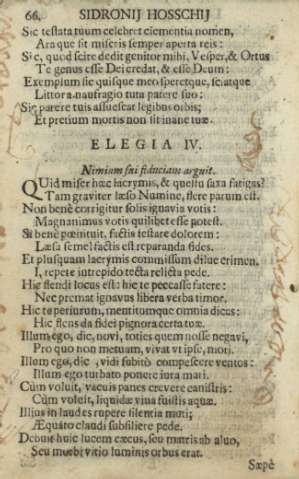 66. SIDRONIJ HOSSCHIJ
Sic testata tuum celebret clementia nomen,
Araque sit miseris semper aperta reis:
Sic, quod scire dedit genitor mihi, Vesper, & Ortus
Te genus esse Dei credat, & esse Deum:
Exemplum sic quisque meo speretque, sciatque
Littora naufragio tuta patere suo:
Sic parere tuis assuescat legibus orbis;
Et pretium mortis non sit inane tuæ.
ELEGIA IV.
Nimium sui fiduciam arguit.
QUid miser hæc lacrymis, & questu saxa fatigas?
Tam graviter læso Numine, flere parum est.
Non benè corrigitur solis ignavia votis:
Magnanimus votis quilibet esse potest.
Si benè pœnituit, factis testare dolorem:
Læsa semel factis est reparanda fides.
Et plusquam lacrymis commissum dilue crimen.
I, repete intrepido tecta relicta pede.
Hic flendi locus est: hic te peccasse fatere:
Nec premat ignavus libera verba timor.
Hic te perjurum, mentitumque omnia dicus:
Hic flens da fidei pignora certa tuæ.
Illum ego, dic, novi, toties quem nosse negavi,
Pro quo non metuam, vivat ut ipse, mori.
Illum ego, dic, vidi subitò compescere ventos:
Illum ego turbato ponere jura mari.
Cùm voluit, vacuis panes crevere canistris:
Cùm voluit, liquidæ viua fuistis aquæ.
Illius in laudes rupere silentia muti;
Æquato claudi subsiliere pede.
Debuit huic lucem cæcus, seu matris ab alvo,
Seu morbi vitio luminis orbus erat.
Sæpè